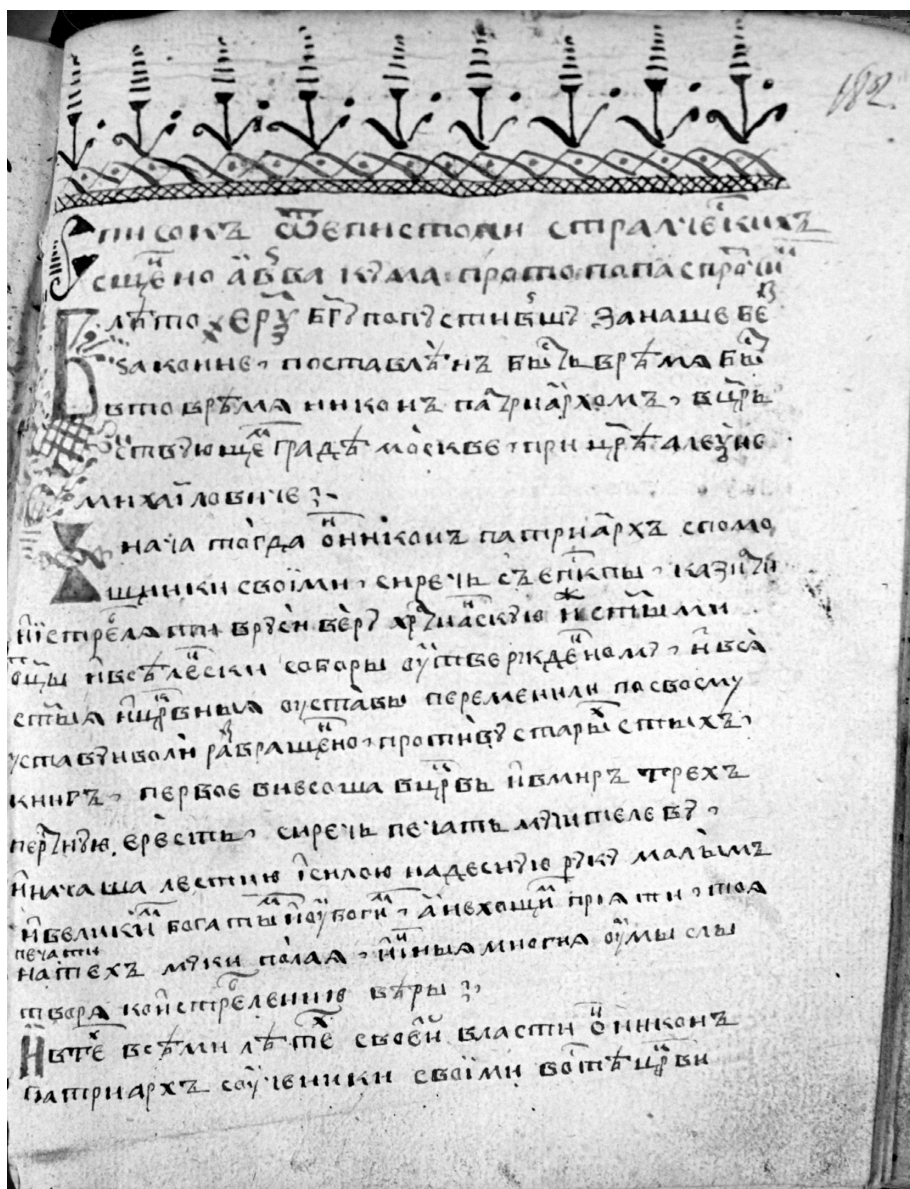 182
Списокъ ѿ епистолии страдчєскихъ
сщ҃ено авва кума протопопа спроши
Влѣто хєрѯ бг҃ꙋ попꙋстившꙋ занаше бєз
ꙁаконие, поставлѣнъ бысть врѣмѧ бы
вто врѣмѧ никонъ патриархомъ, вцр҃ь
ствꙋющє градѣ москвє, при цр҃ѣ алеѯиє
михаиловичє
нача тогда ѻн никонъ патриархъ спомо
щники своїми, сирєчь съ єпкпы, казити
й истрєлѧти врꙋси вєрꙋ хрт҃иаскую и ст҃ыми
оц҃ы и всѣлєски соборы оутвєржденомꙋ, и всѧ
ст҃ыѧ и цр҃вныѧ оуставы перємєнили по своємꙋ
уставꙋ и воли раꙁвращено, противꙋ стары ст҃ыхъ
книгъ, пєрвоє внєсоша вцр҃вь и вмиръ трєхъ
пєрꙋную єрєсть, сирєчь пєчать мꙋчитєлєвꙋ,
и начаша лєстию и силою надєсную рꙋкꙋ малымъ
и вєликим богатым и оубогим, а нєхощи приѧти, тоѧ
пєчати
на тєхъ мꙋки полаѧ, и иныѧ многиѧ оумыслы
творѧ ко истрєблєнию вѣры
И в тє всѣми лѣтє своєй власти ѻн никонъ
патриархъ со оучєники своїми во ст҃ѣ цр҃кви